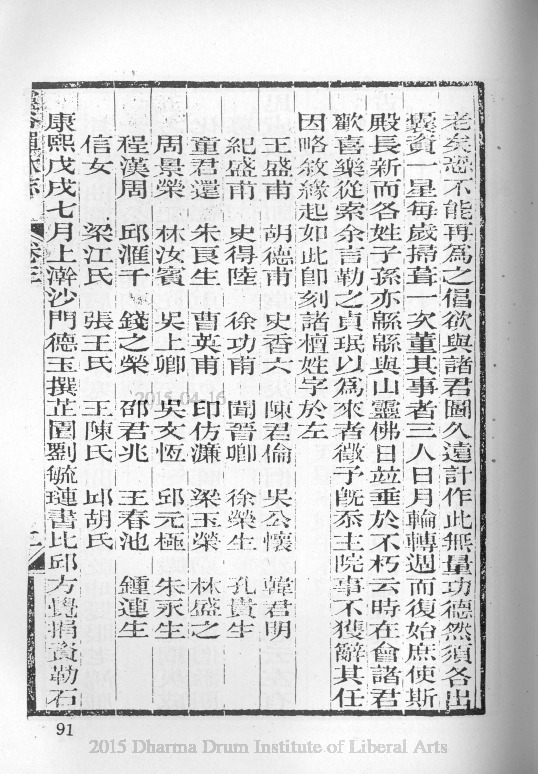 老矣恐不能再為之倡欲與諸君圖久遠計作此無量功德然須各出
囊資一星每歲掃葺一次董其事者三人日月輪轉週而復始庶使斯
殿長新而各姓子孫亦緜緜與山靈佛日並垂於不朽云時在會諸君
歡喜樂從索余言勒之貞珉以為來者徵予旣忝主院事不獲辭其任
因略敘緣起如此卽刻諸檀姓字於左
王盛甫 胡德甫 史香六 陳君倫 吳公懷 韓君明
紀盛甫 史得陸 徐功甫 聞晉卿 徐榮生 孔貴生
童君還 朱良生 曹英甫 印仿濂 梁玉榮 林盛之
周景榮 林汝賓 吳上卿 吳文恆 邱元極 朱永生
程漢周 邱滙千 錢之榮 邵君兆 王春池 鍾連生
信女 梁江氏 張王氏 王陳氏 邱胡氏
康熙戊戌七月上澣沙門德玉撰芷園劉毓璉書比邱方覺捐資勒石
卷三
2015-04-16
91
2015 Dharma Drum Institute of Liberal Arts